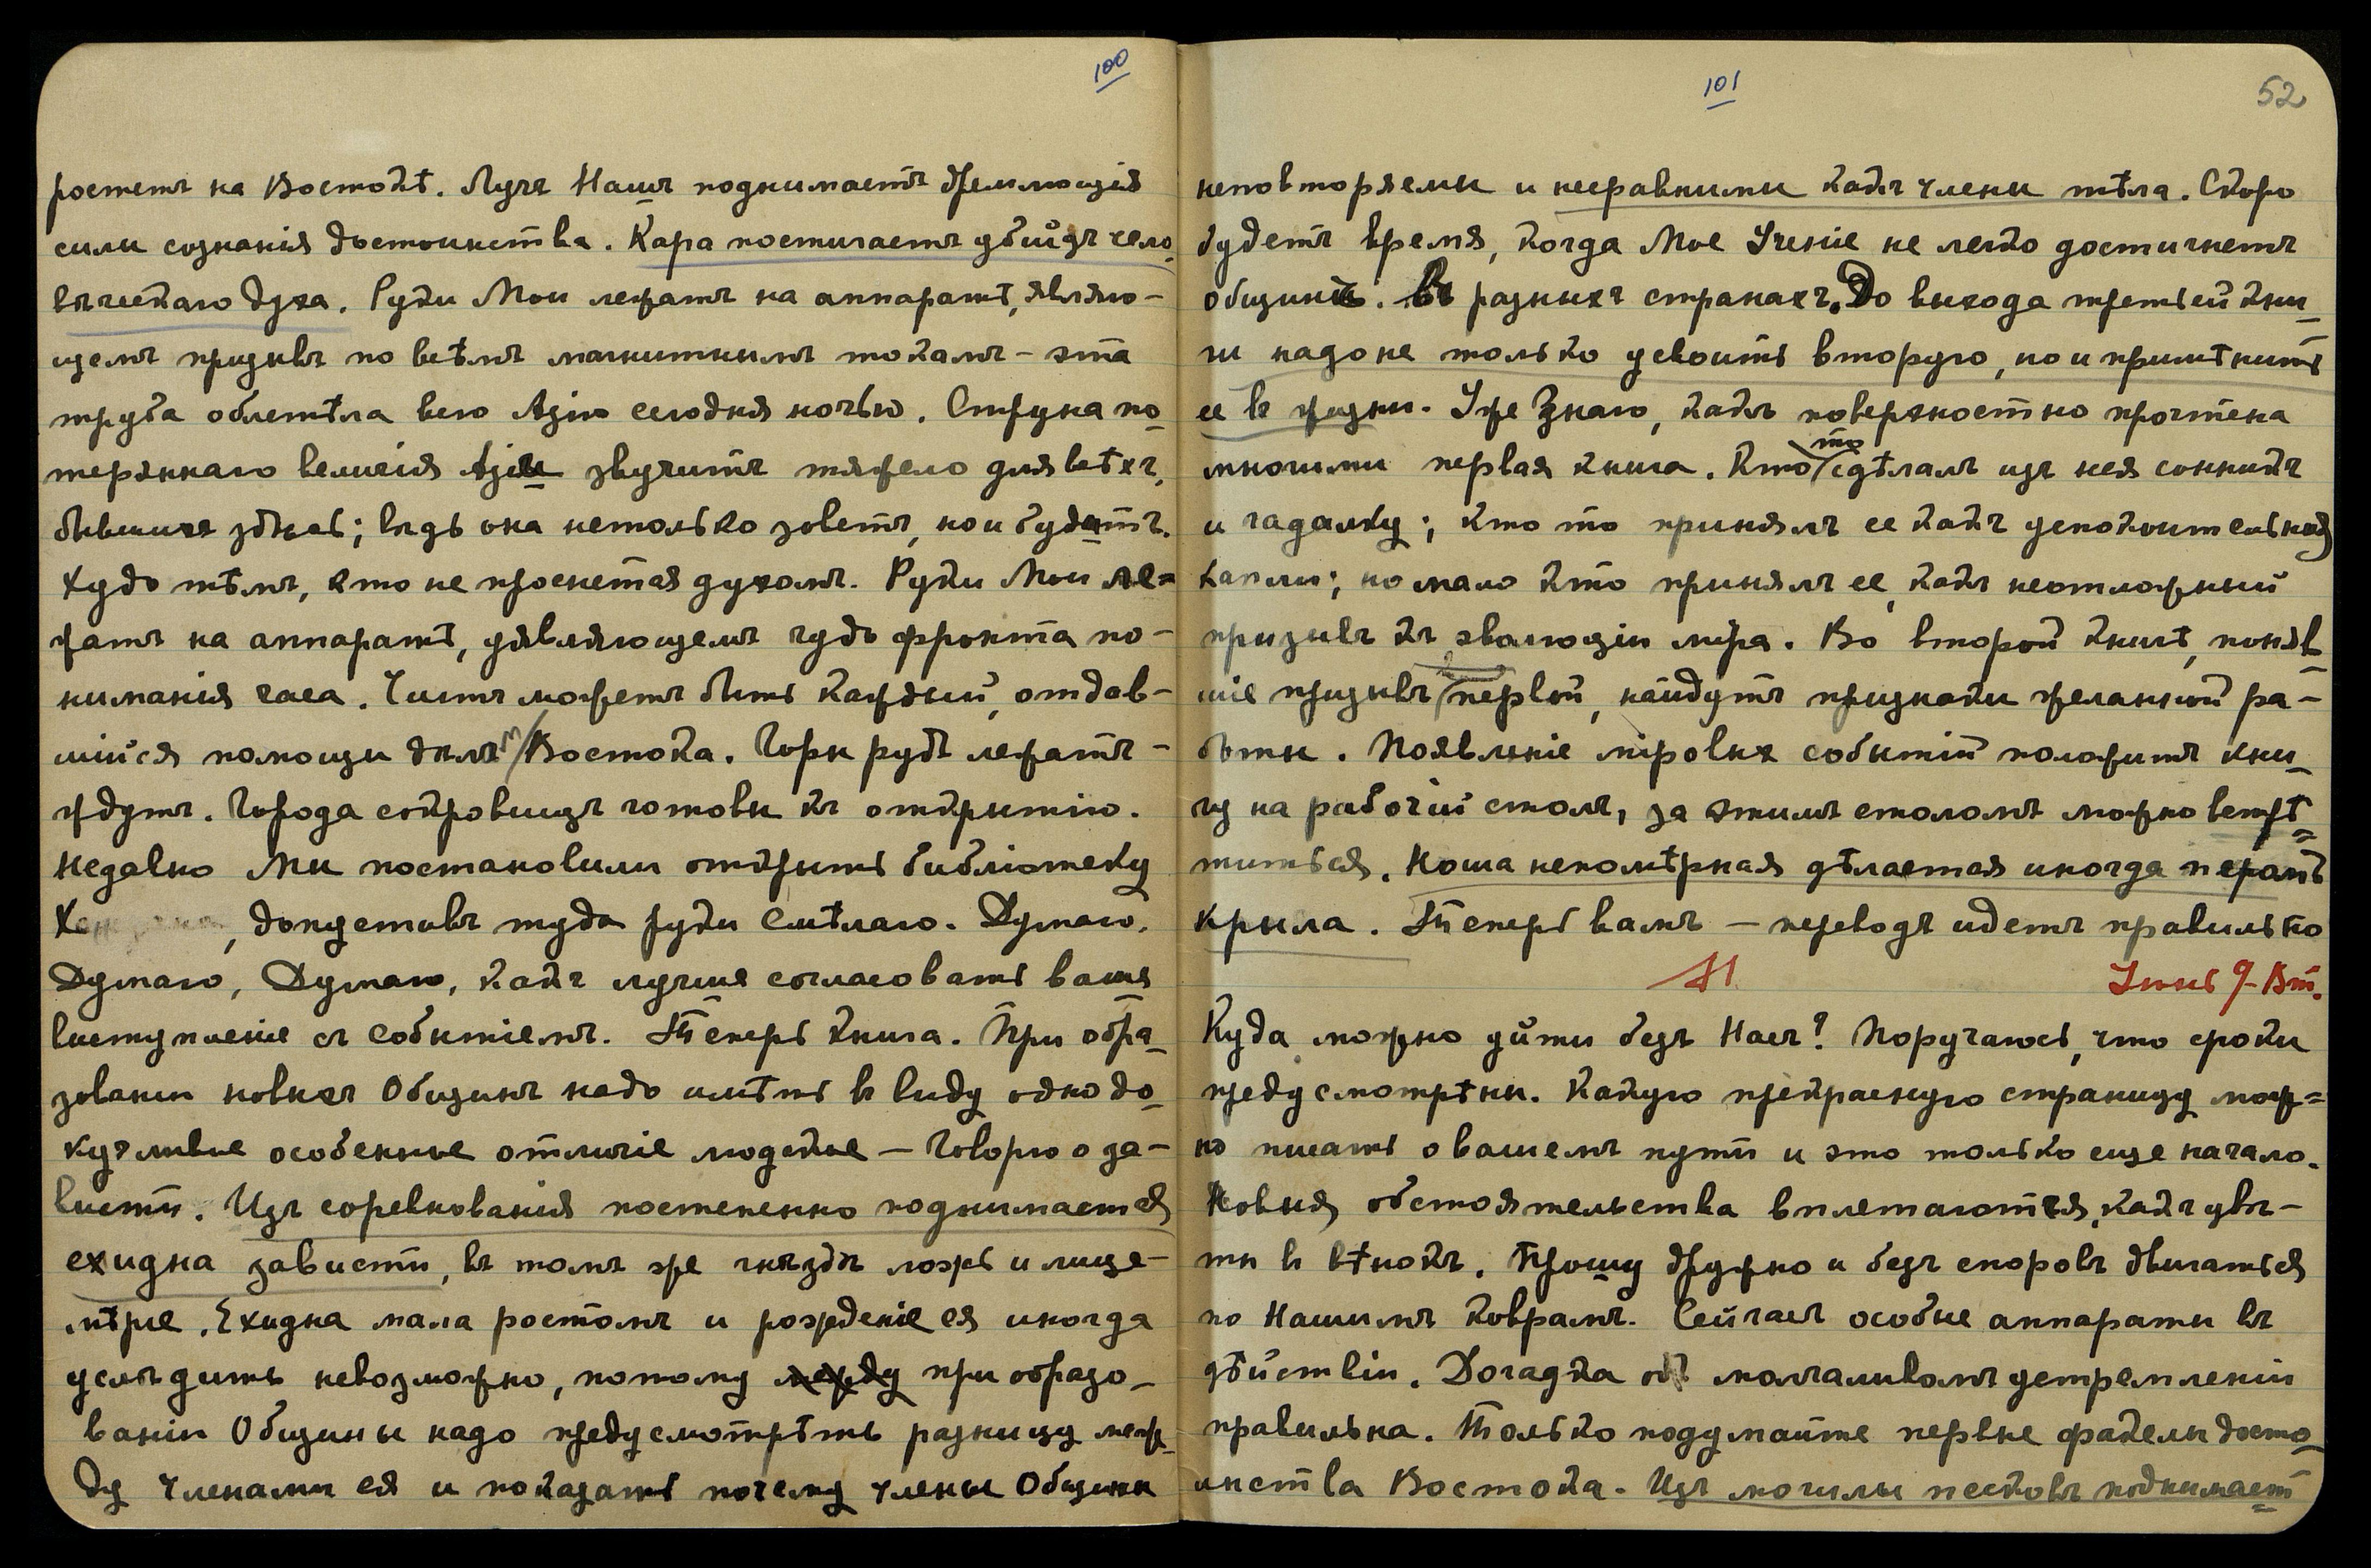 100
ростетъ на Востокѣ. Лучъ Нашъ поднимаетъ дремлющія
силы сознанія достоинства. Кара постигаетъ убійцъ чело-
вѣческаго духа. Руки Мои лежатъ на аппаратѣ, являю-
щемъ призывъ по всѣмъ магнитнымъ токамъ - эта
труба облетѣла всю Азію сегодня ночью. Струна по-
теряннаго величія Азіи звучитъ тяжело для всѣхъ,
бывшихъ здѣсь; вѣдь она нетолько зоветъ, но и будитъ.
Худо тѣмъ, кто не проснется духомъ. Руки Мои ле=
жатъ на аппаратѣ, уявляющемъ чудо фронта по-
ниманія часа. Чистъ можетъ быть каждый, отдав-
шійся помощи дѣламъ Востока. Горы рудъ лежатъ -
ждутъ. Города сокровищъ готовы къ открытію.
Недавно Мы постановили открыть библіотеку
, допустивъ туда руки Смѣлаго. Думаю,
Думаю, Думаю, какъ лучше согласовать ваше
выступленіе съ событіемъ. Теперь книга. При обра-
зованіи новыхъ Общинъ надо имѣть въ виду одно до-
кучливое особенное отличіе людское — Говорю о за-
висти. Изъ соревнованія постепенно поднимается
ехидна зависти, въ томъ же гнѣздѣ ложь и лице-
мѣріе. Ехидна мала ростомъ и рожденіе ея иногда
услѣдить невозможно, потому между при образо-
ваніи Общины надо предусмотрѣть разницу меж-
ду членами ея и показать почему члены Общины
101
52
неповторяемы и несравнимы какъ члены тѣла. Скоро
будетъ время, когда Мое Ученіе не легко достигнетъ
общины. Въ разныхъ странахъ. До выхода третьей кни-
ги надо не только усвоить вторую, но и примѣнить
ее въ жизни. Уже Знаю, какъ поверхностно прочтена
многими первая книга. Кто то сдѣлалъ изъ нея сонникъ
и гадалку; кто то принялъ ее какъ успокоительныя
капли; но мало кто принялъ ее, какъ неотложный
призывъ къ эволюціи міра. Во второй книгѣ, поняв-
шіе призывъ первой, найдутъ признаки желанной ра-
боты. Появленіе міровыхъ событій положитъ кни-
гу на рабочій столъ, за этимъ столомъ можно встрѣ=
титься. Ноша непомѣрная дѣлается иногда перомъ
крыла. Теперь вамъ — переводъ идетъ правильно
Іюнь 9 - Вт.
Куда можно уйти безъ Насъ? Поручаюсь, что сроки
предусмотрѣны. Какую прекрасную страницу мож=
но писать о вашемъ пути и это только еще начало.
Новыя обстоятельства вплетаются, какъ цвѣ-
ты въ вѣнокъ. Прошу дружно и безъ споровъ двигаться
по Нашимъ коврамъ. Сейчасъ особые аппараты въ
дѣйствіи. Догадка объ молчаливомъ устремленіи
правильна. Только подумайте первые факелы досто-
инства Востока. Изъ могилы песковъ поднимаетъ